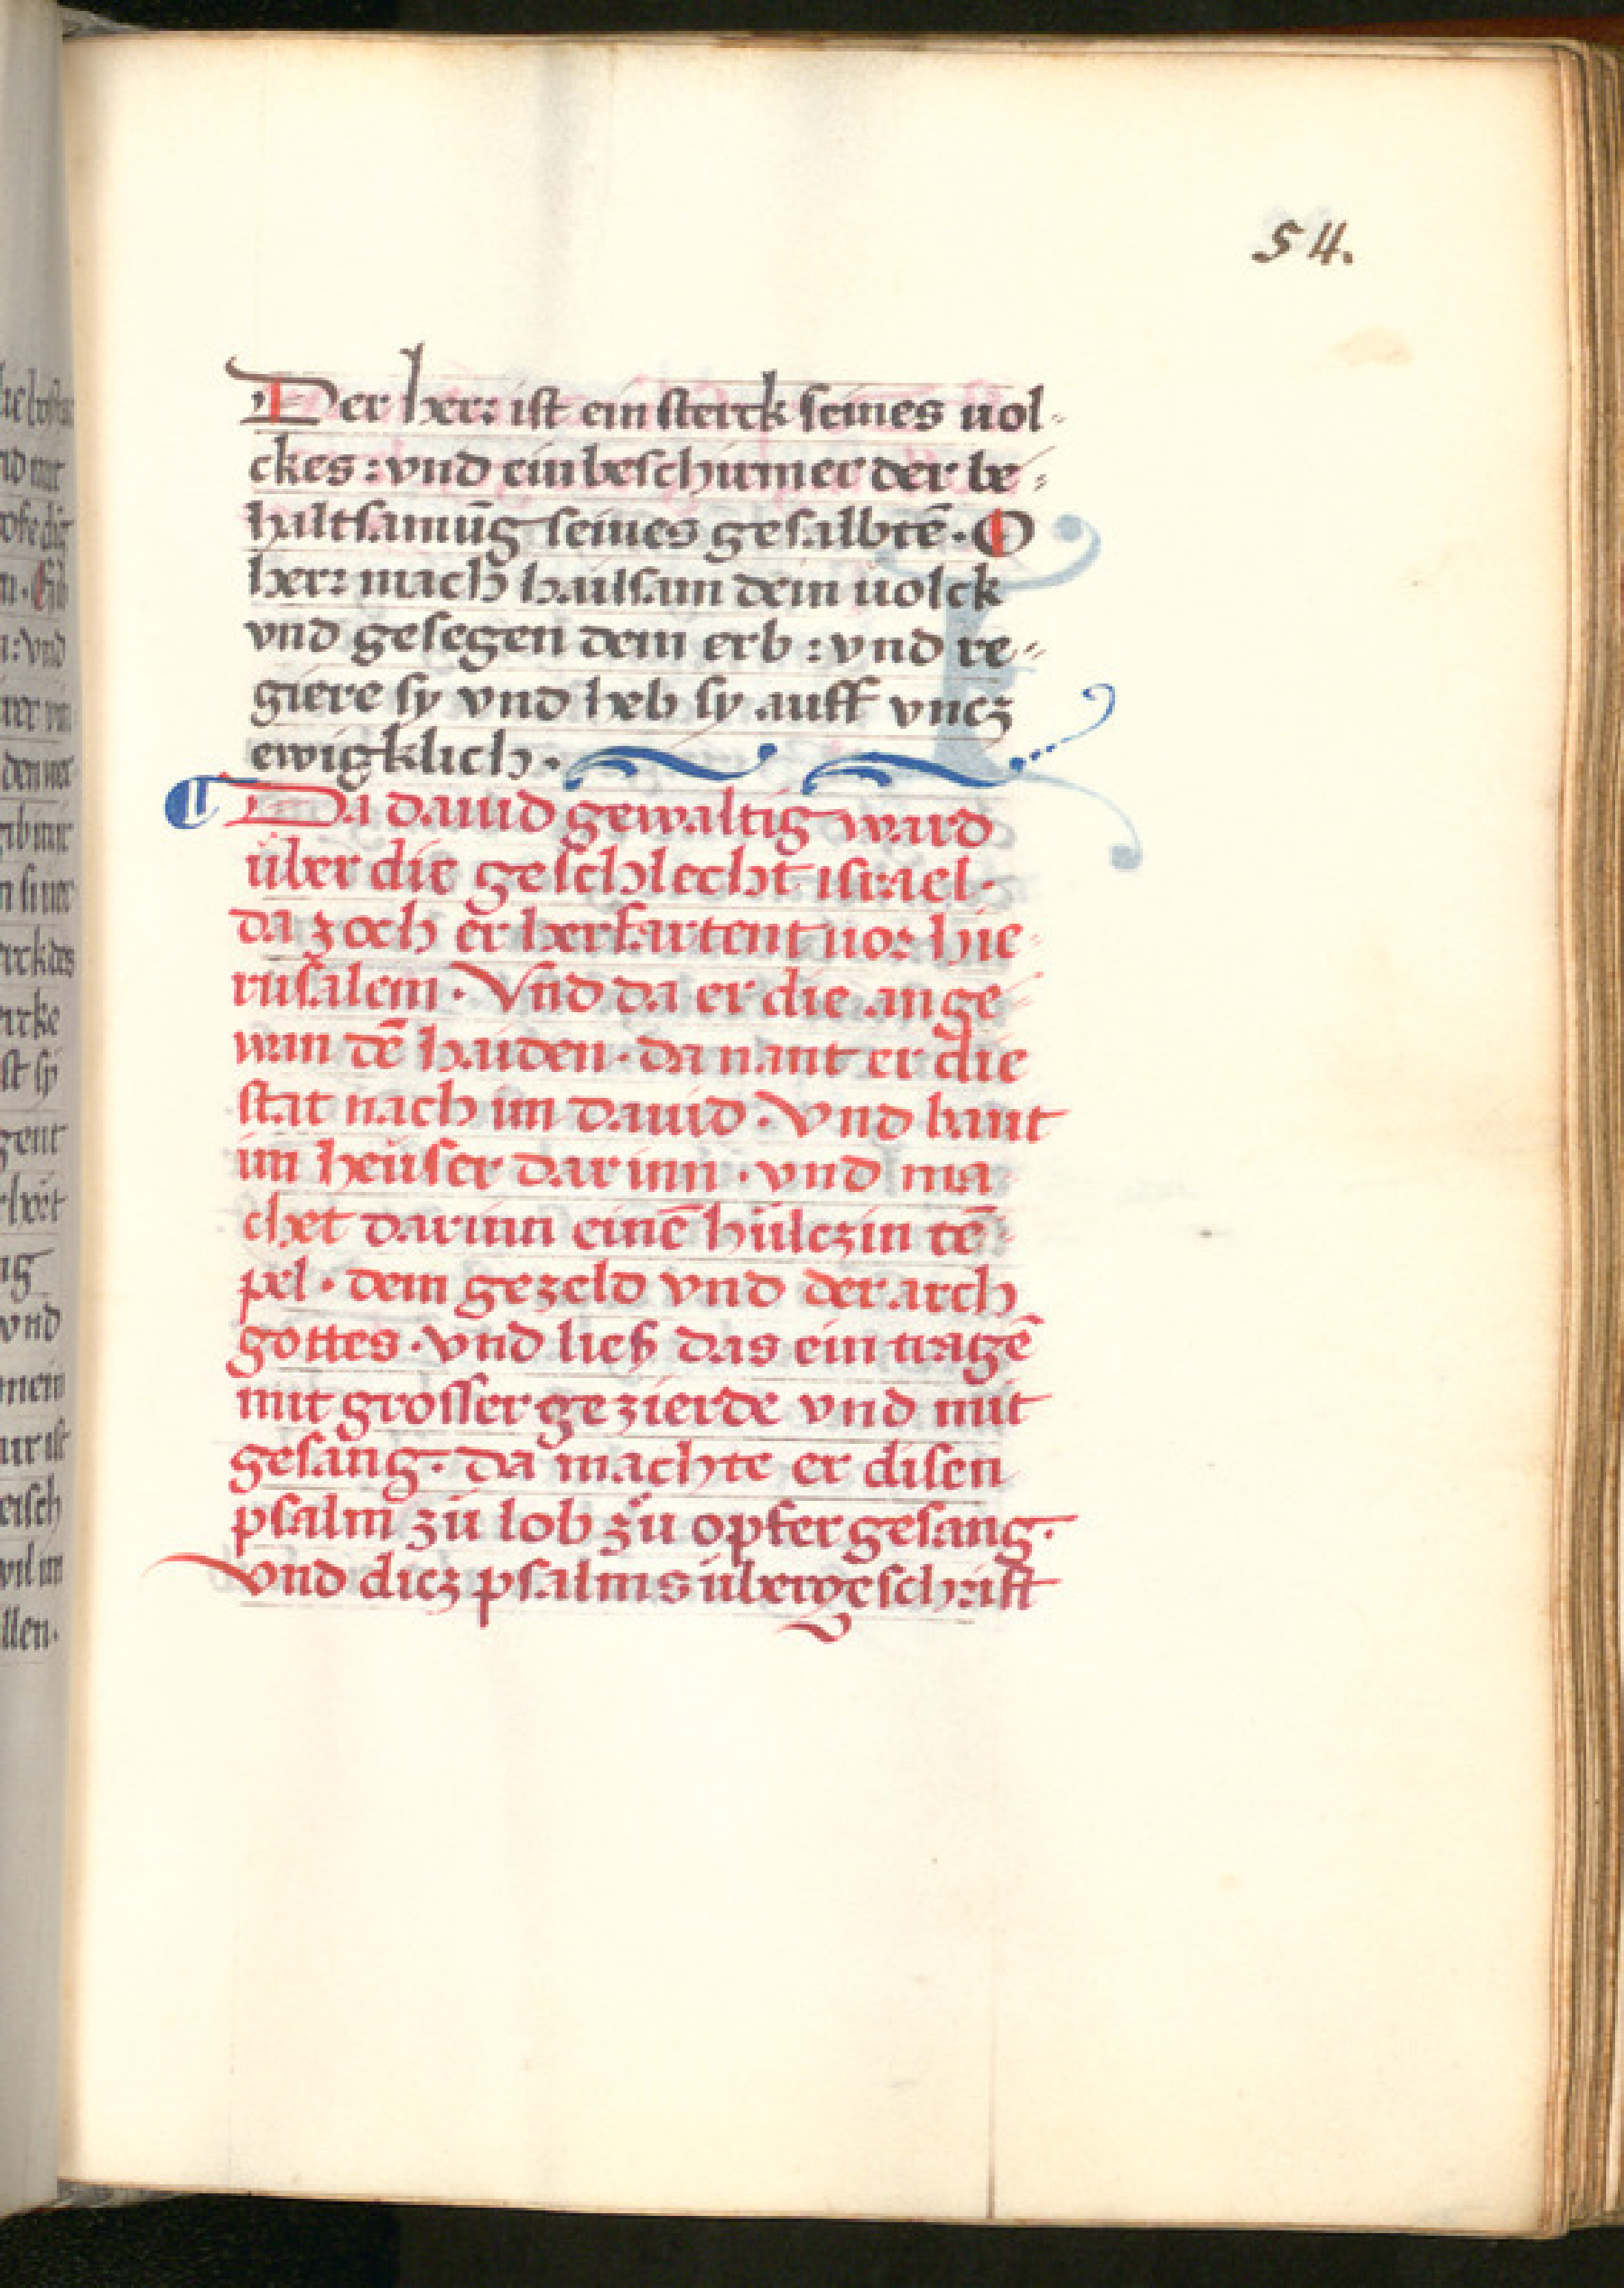 54.
Der herr ist ein sterck seines uol-
ckes : vnd ein beschirmer der be-
haltsamūg seines gesalbtē · O
herr mach hailsam dein uolck
vnd gesegen dein erb : vnd re-
giere sy vnd heb sy auff vncz
ewigklich ·
Da dauid gewaltig ward
über die geschlecht israel ·
da zoch er herfartent uor hie-
rusalem · Vnd da er die ange-
wan dē haiden · da nant er die
stat nach im dauid · Vnd baut
im heüser dar inn · vnd ma
chet darinn einē hülczin tē-
pel · dem gezeld vnd der arch
gottes · vnd ließ das ein tragē
mit grosser gezierde vnd mit
gesang · da machte er disen
psalm zů lob zů opfer gesang ·
vnd dicz psalms übergeschrift